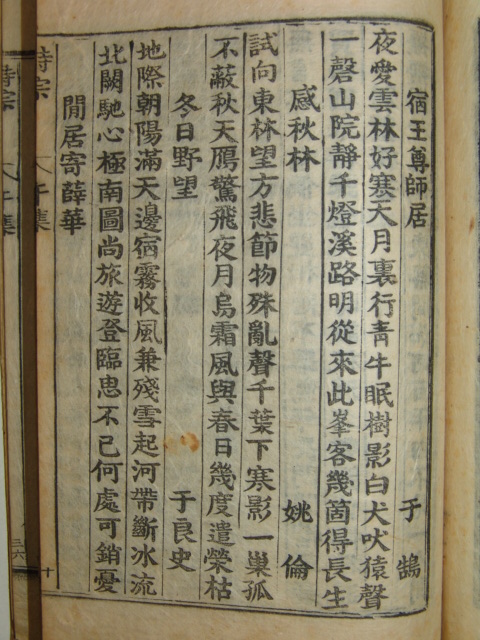 宿王尊師居 于鵠
夜愛雲林好寒天月裏行青牛眠樹影白犬吠猿聲
一磬山院靜千燈溪路明從來此峯客幾箇得長生
感秋林 姚倫
試向東林望方悲節物殊亂聲千葉下寒影一巢孤
不蔽秋天鴈驚飛夜月烏霜風與春日幾度遣榮枯
冬日野望 于良史
地際朝陽滿天邊宿霧收風兼殘雪起河帶斷冰流
北闕馳心極南圖尚旅遊登臨思不已何處可銷憂
閒居寄薛華
詩宗 集 十